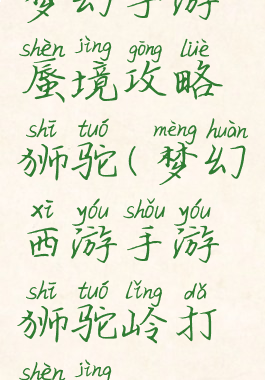 梦幻手游
shèn jìng gōng lüè
蜃境攻略
shī tuó mèng huàn
狮驼(梦幻
xī yóu shǒu yóu
西游手游
shī tuó lǐng dǎ
狮驼岭打
shèn jìng